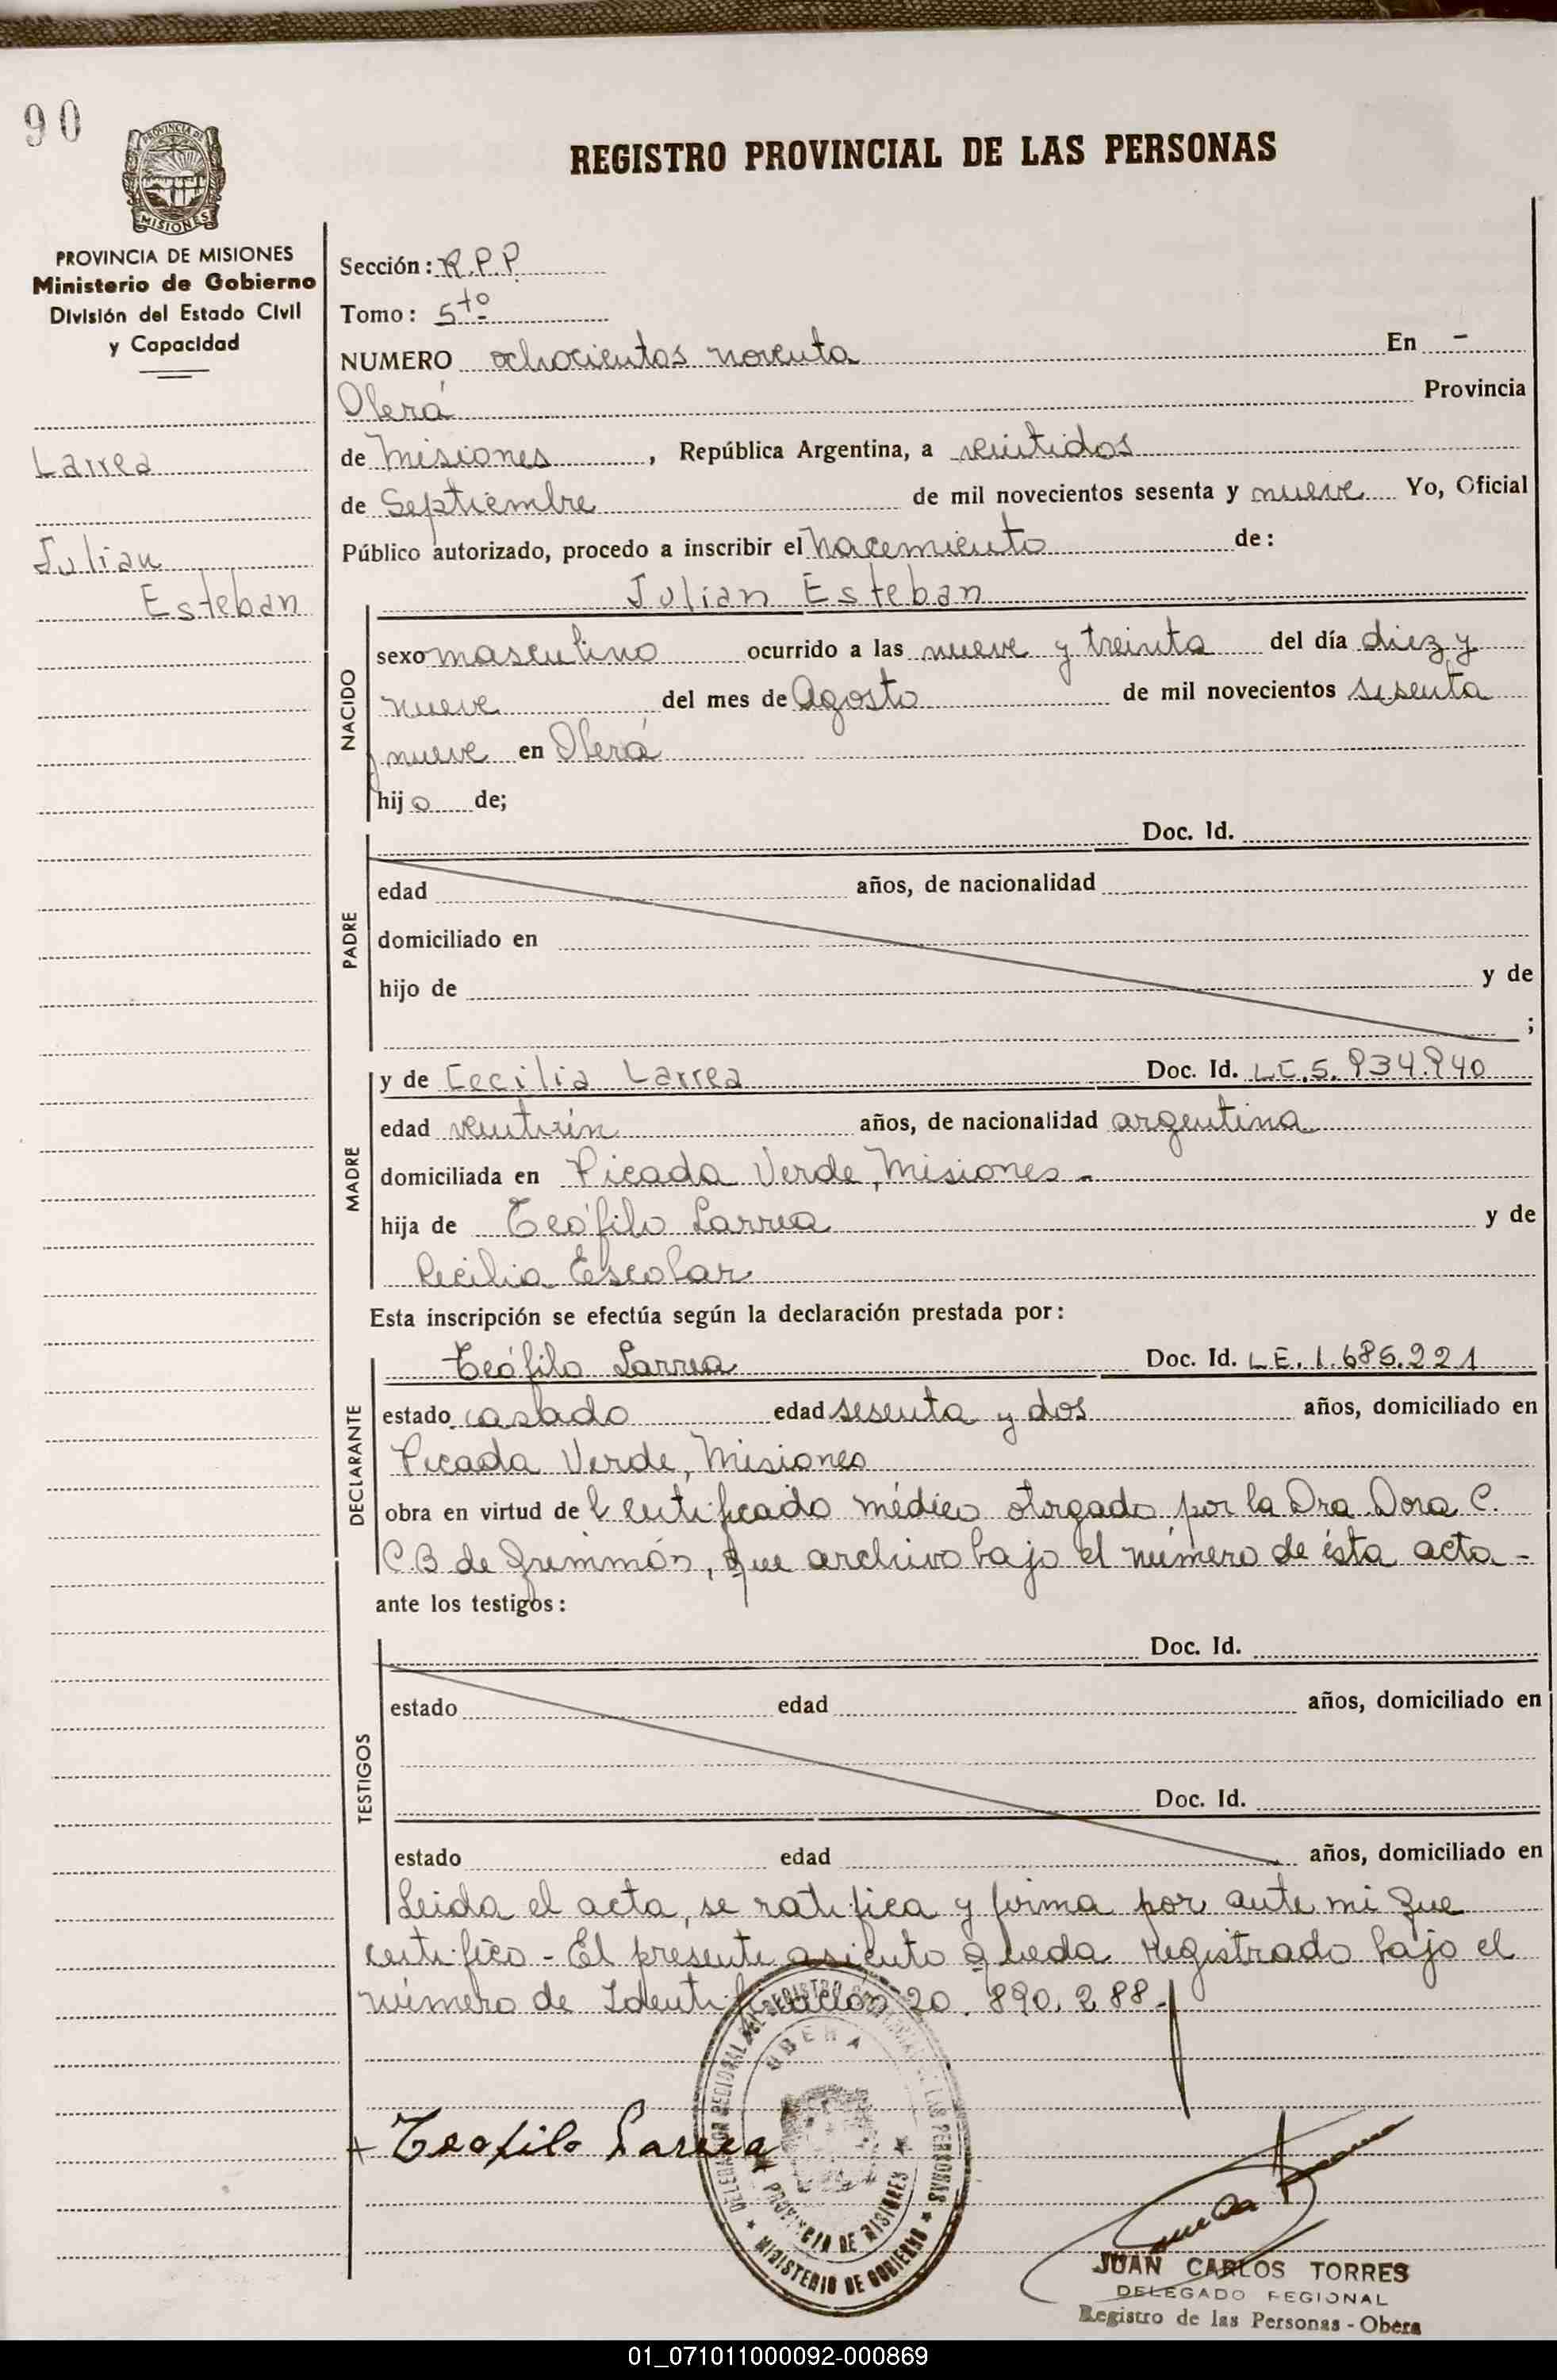 90
PROVINCIA DE
MISIONES
REGISTRO PROVINCIAL DE LAS PERSONAS
PROVINCIA DE MISIONES
Ministerio de Gobierno
División del Estado Civil
y Capacidad
Larrea
Julian
Esteban
Sección: R.P.P.
Tomo: 5to
NUMERO ochocientos noventa En -
Oberá Provincia
de Misiones, República Argentina, a veintidos
de Septiembre de mil novecientos sesenta y nueve Yo, Oficial
Público autorizado, procedo a inscribir el nacemiento de:
Julian Esteban
NACIDO
sexo masculino ocurrido a las nueve y treinta del día diez y
nueve del mes de Agosto de mil novecientos sesenta
y nueve en Oberá
hijo de;
Doc. Id.
PADRE
edad años, de nacionalidad
domiciliado en
hijo de y de
;
MADRE
y de Cecilia Larrea Doc. Id. L.C. 5.934.940
edad años, de nacionalidad argentina
domiciliada en Picada Verde, Misiones -
hija de Teófilo Larrea y de
Cecilia Escolar
Esta inscripción se efectúa según la declaración prestada por:
DECLARANTE
Teófilo Larrea Doc. Id. L.E. 1.685.221
estado casado edad sesenta y dos años, domiciliado en
Picada Verde, Misiones
obra en virtud del certificado médico otorgado por la Dra. Dora C.
C.B de que archivo bajo el número de ésta acta -
ante los testigos:
TESTIGOS
Doc. Id.
estado edad años, domiciliado en
Doc. Id.
estado edad años, domiciliado en
Leida el acta, se ratifica y firma por ante mi que
certifico - El presente asiento queda registrado bajo el
número de Identificación 20.890.288-
DELEGADO REGIONAL DEL REGISTRO PROVINCIAL DE LAS PERSONAS
OBERA
PROVINCIA DE MISIONES
MINISTERIO DE GOBIERNO
+ Teofilo Larrea
JUAN CARLOS TORRES
DELEGADO REGIONAL
Registro de las Personas - Oberá
01_071011000092-000869